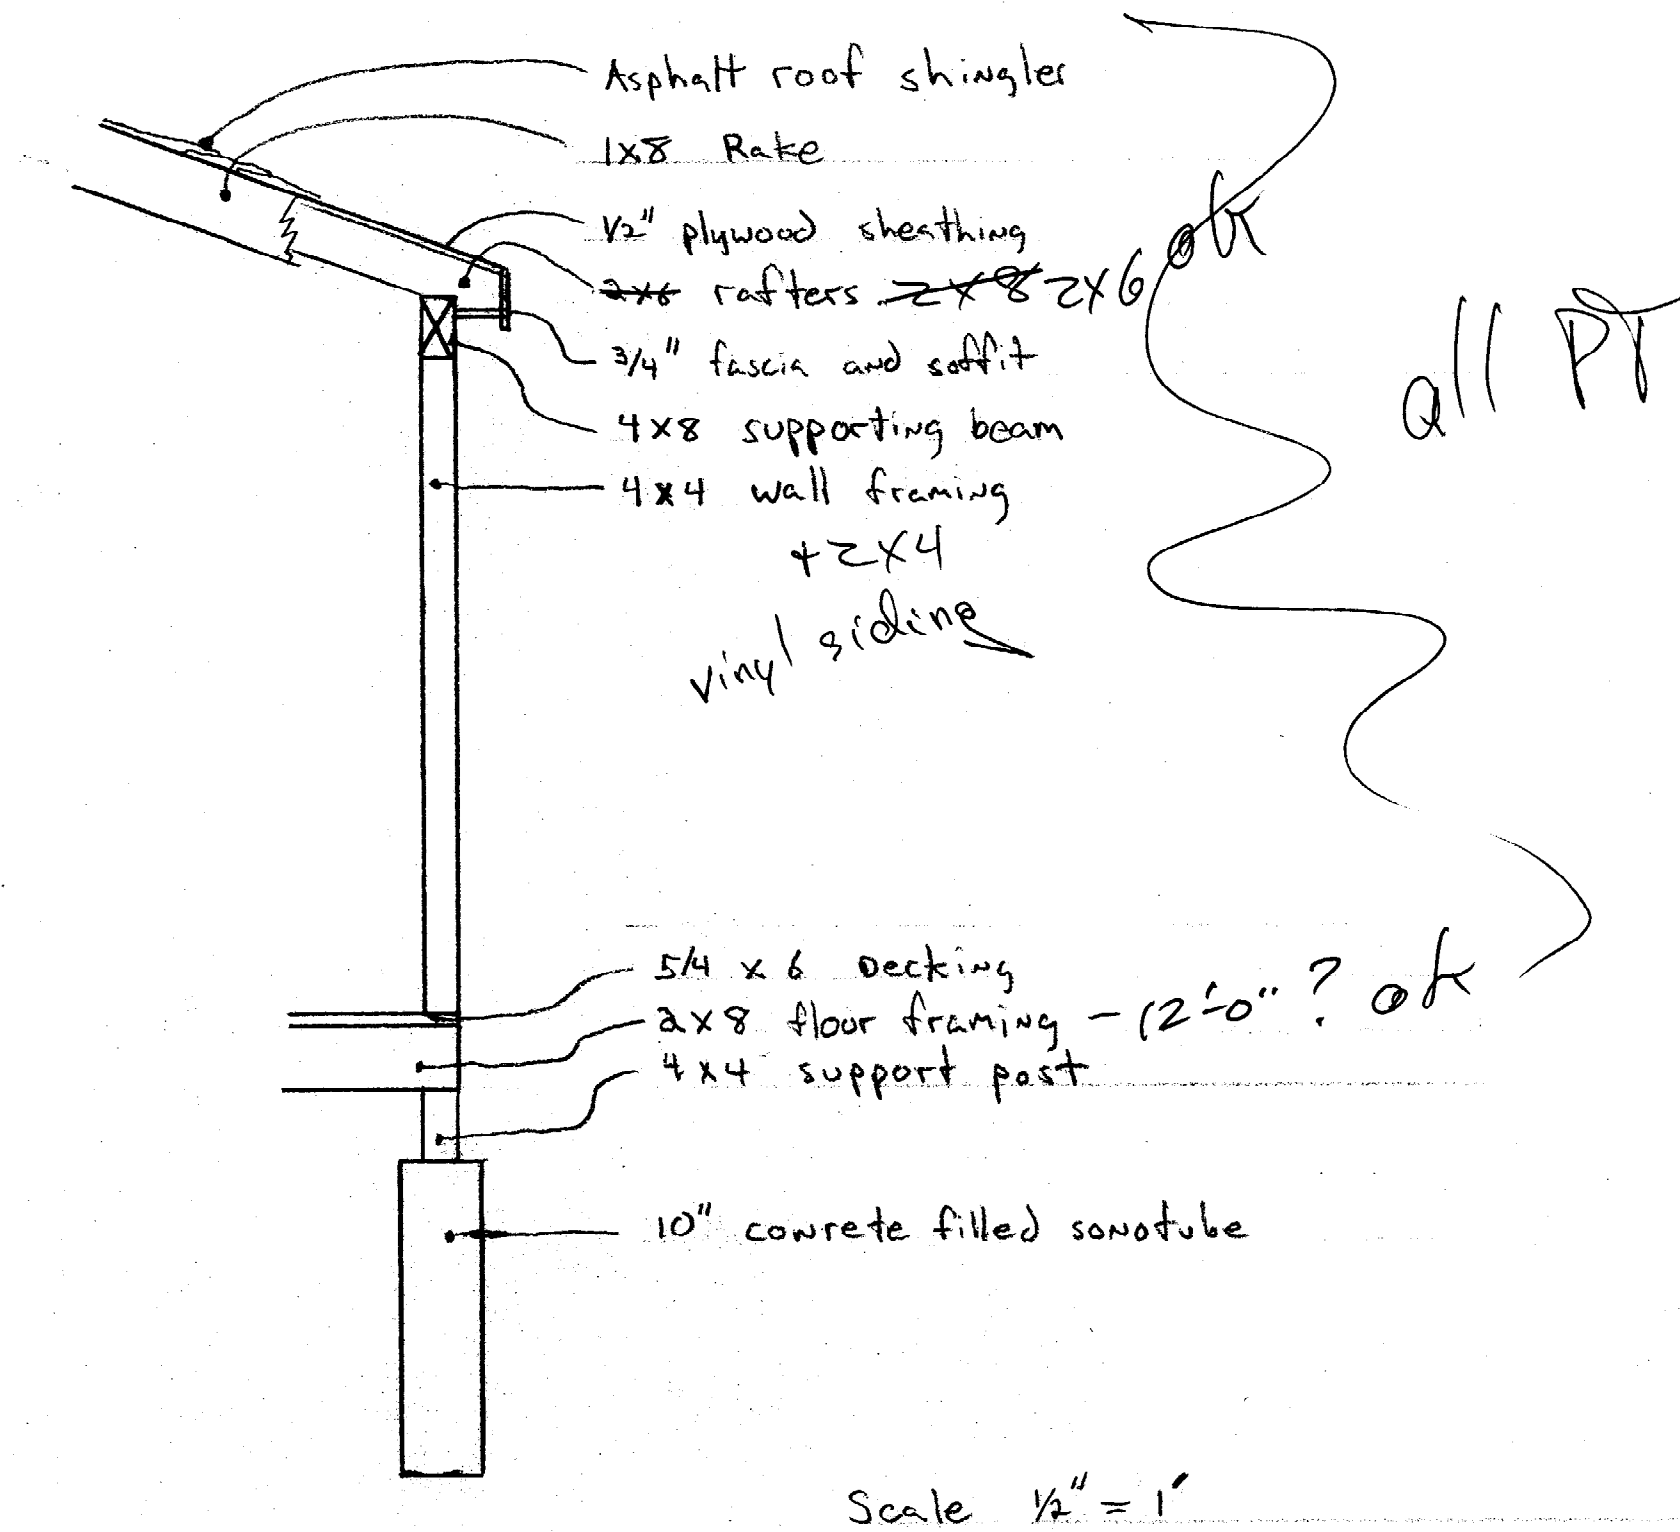 Asphalt roof shingles
1x8 Rake
1/2" plywood sheathing
2x6 rafters 2x8 2x6 ok
all PT
3/4" fascia and soffit
4x8 supporting beam
4x4 wall framing
+ 2x4
vinyl siding
5/4 x 6 Decking
2x8 floor framing - 12'-0" ? ok
4x4 support post
10" conrete filled sonotube
Scale 1/2" = 1'